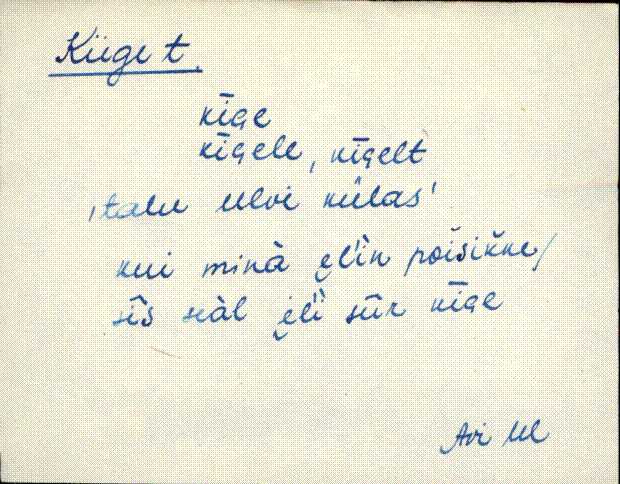 Kiige t.
kīge
kīgele, kīgelt
'talu Ulvi külas'
kui minà ęl'ìn poisikne/
sîs seàl ęl'ì sūr kīge
Avi Ul